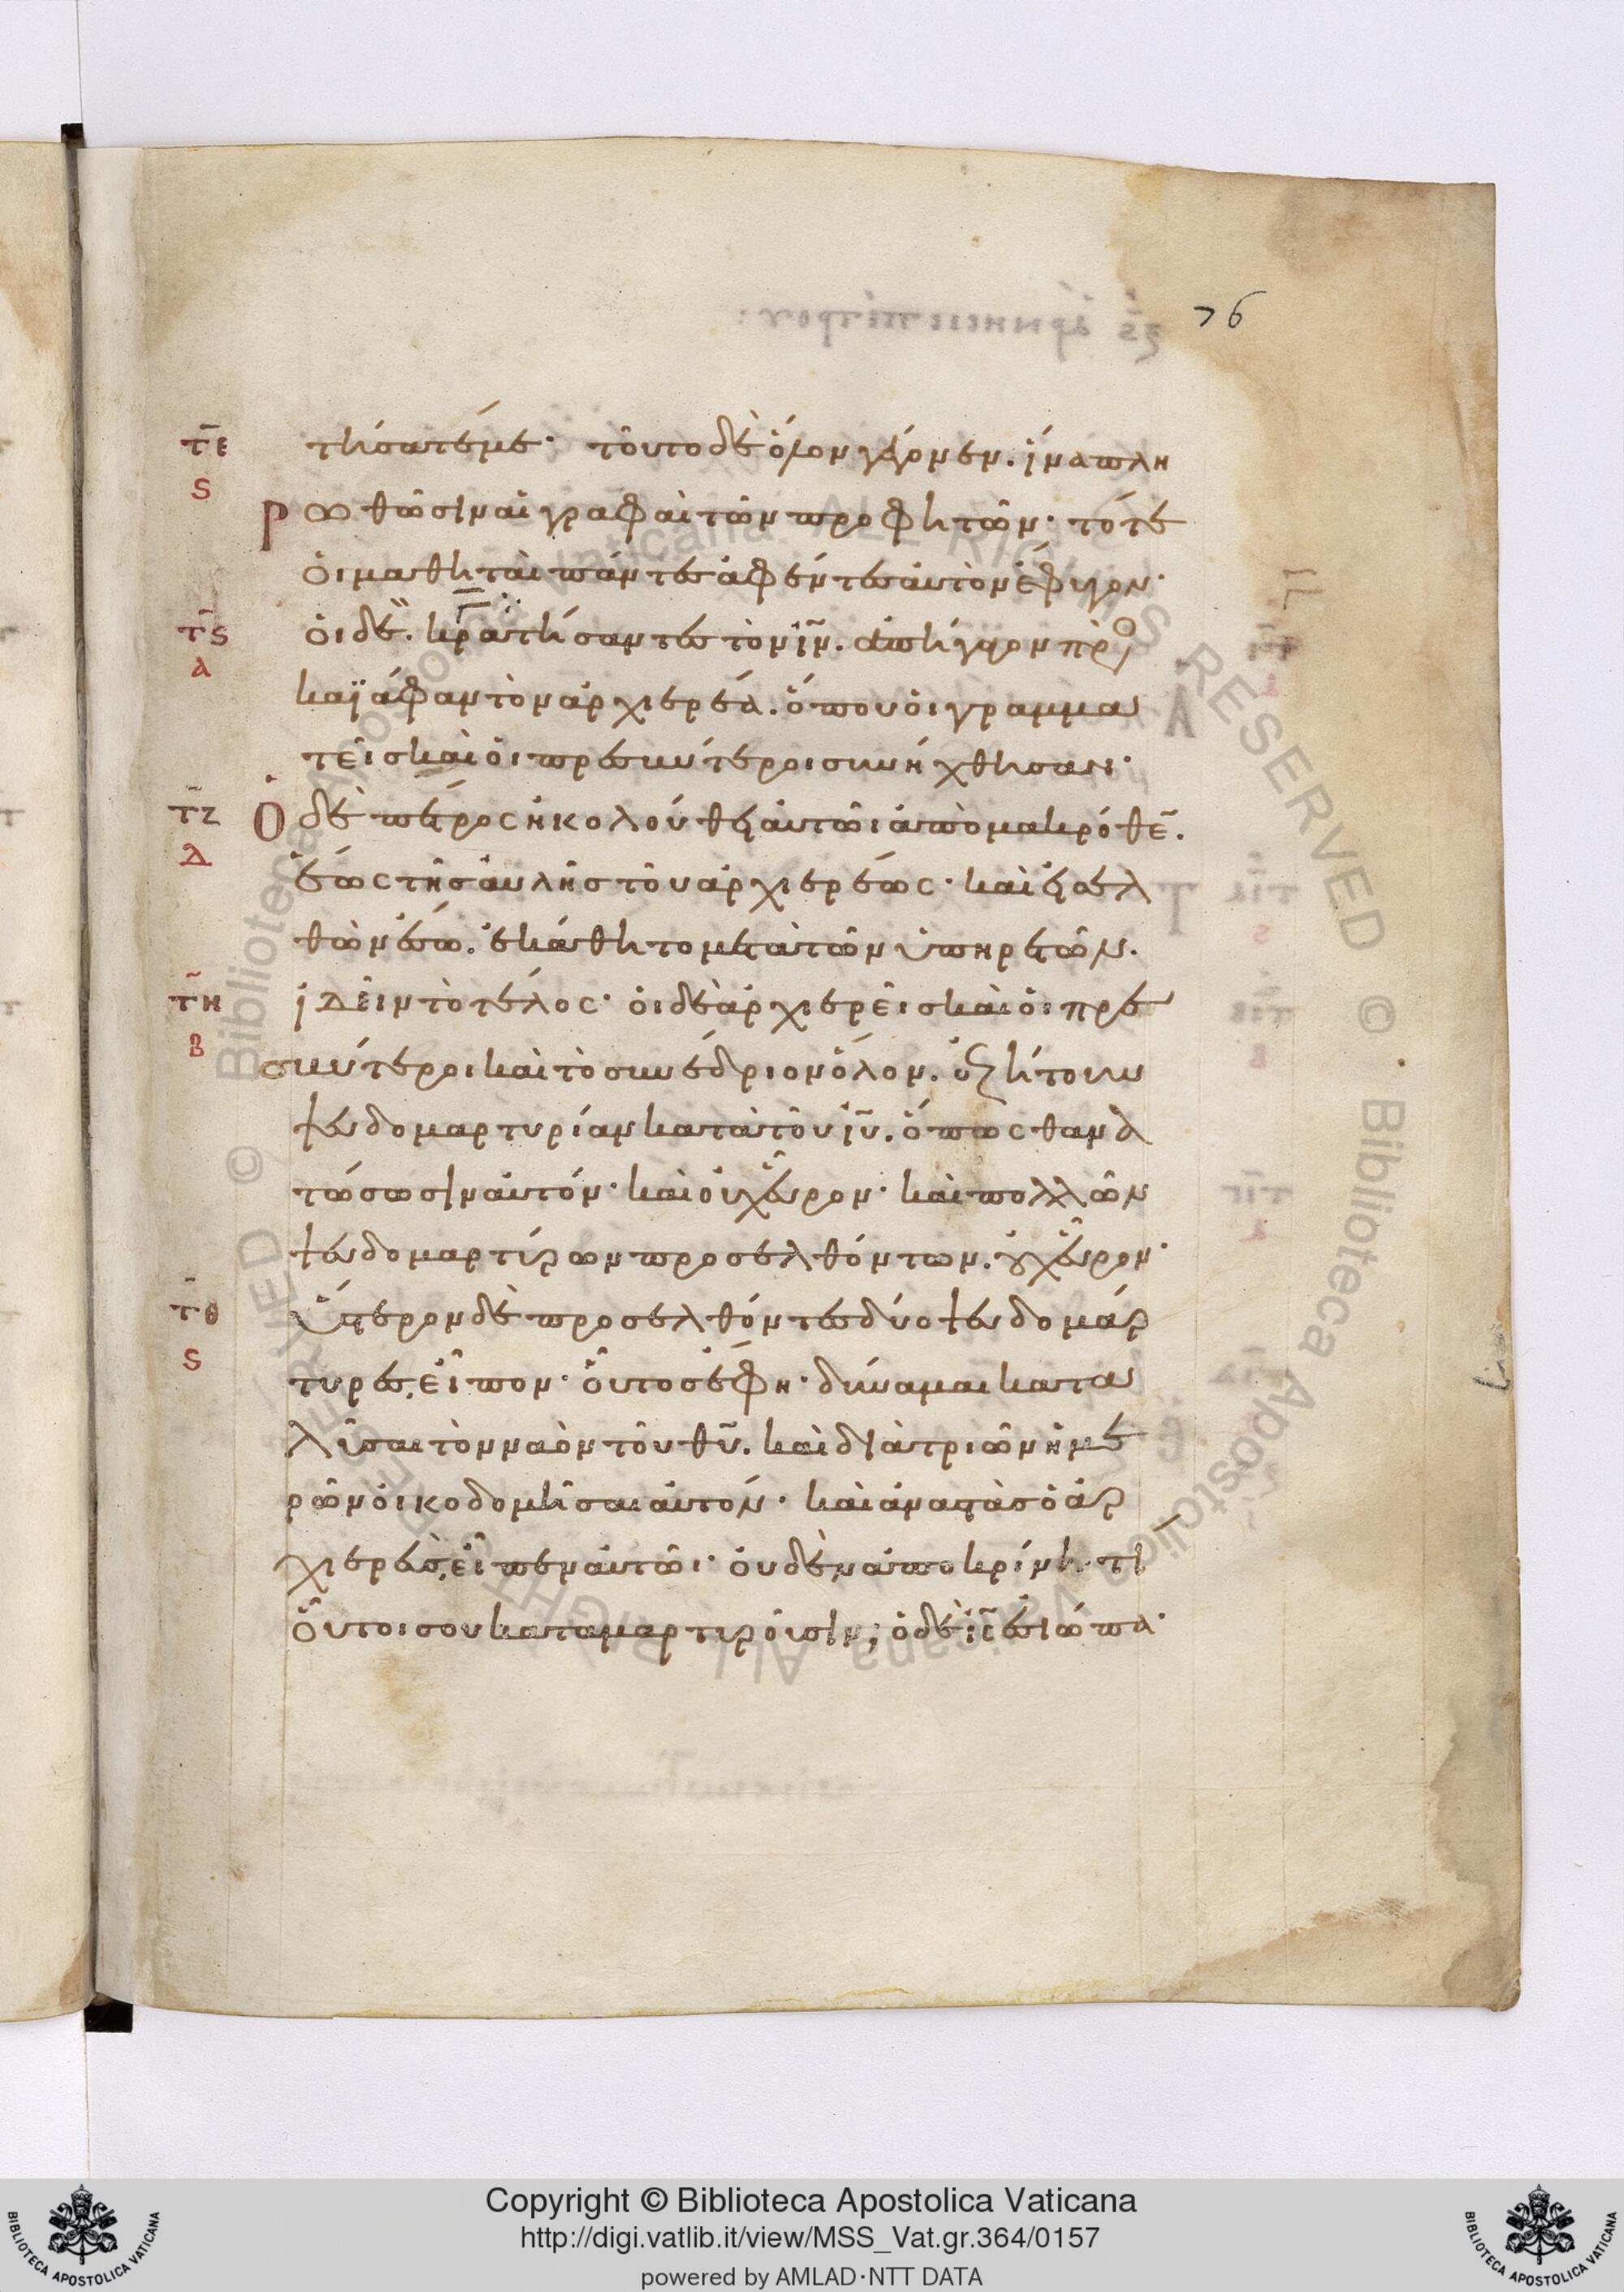 76
τ̅ε
ς
τήσατέ με· τοῦτο δὲ ὅλον γέγονεν. ἵνα πλη
ρωθῶσιν αἱ γραφαὶ τῶν προφητῶν· τότε
οἱ μαθηταὶ πάντες ἀφέντες αὐτὸν ἔφυγον·
τ̅ς
α
οἱ δὲ. κρατήσαντες τὸν ι̅ν̅. ἀπήγαγον πρὸς
καϊάφαν τὸν ἀρχιερέα. ὅπου οἱ γραμμα
τεῖς καὶ οἱ πρεσβύτεροι συνήχθησαν·
τ̅ζ
δ
Ὁ δὲ πέτρος ἠκολούθει αὐτῶι ἀπὸ μακρόθε̅.
ἕως τῆς αὐλῆς τοῦ ἀρχιερέως· καὶ εἰσελ
θὼν ἔσω. ἐκάθητο μετὰ τῶν ὑπηρετῶν.
τ̅η
β
ἰδεῖν τὸ τέλος· οἱ δὲ ἀρχιερεῖς καὶ οἱ πρε
σβύτεροι καὶ τὸ συνέδριον ὅλον. ἐζήτουν
ψευδομαρτυρίαν κατὰ τοῦ ι̅υ̅. ὅπως θανα
τώσωσιν αὐτόν· καὶ οὐχ εὗρον· καὶ πολλῶν
ψευδομαρτύρων προσελθόντων. οὐχ εὗρον·
τ̅θ
ς
Ὕστερον δὲ προσελθόντες δύο ψευδομάρ
τυρες, εἶπον· οὗτος ἔφη· δύναμαι κατα
λῦσαι τὸν ναὸν τοῦ θ̅υ̅. καὶ διὰ τριῶν ἡμε
ρῶν οἰκοδομῆσαι αὐτόν· καὶ ἀναστὰς ὁ ἀρ
χιερεὺς, εἶπεν αὐτῶι· οὐδὲν ἀποκρίνη· τί
οὗτοι σου καταμαρτυροῦσιν; ὁ δὲ ι̅ς̅ ἐσιώπα·
Copyright © Biblioteca Apostolica Vaticana
http://digi.vatlib.it/view/MSS_Vat.gr.364/0157
powered by AMLAD·NTT DATA
BIBLIOTECA APOSTOLICA VATICANA
BIBLIOTECA APOSTOLICA VATICANA